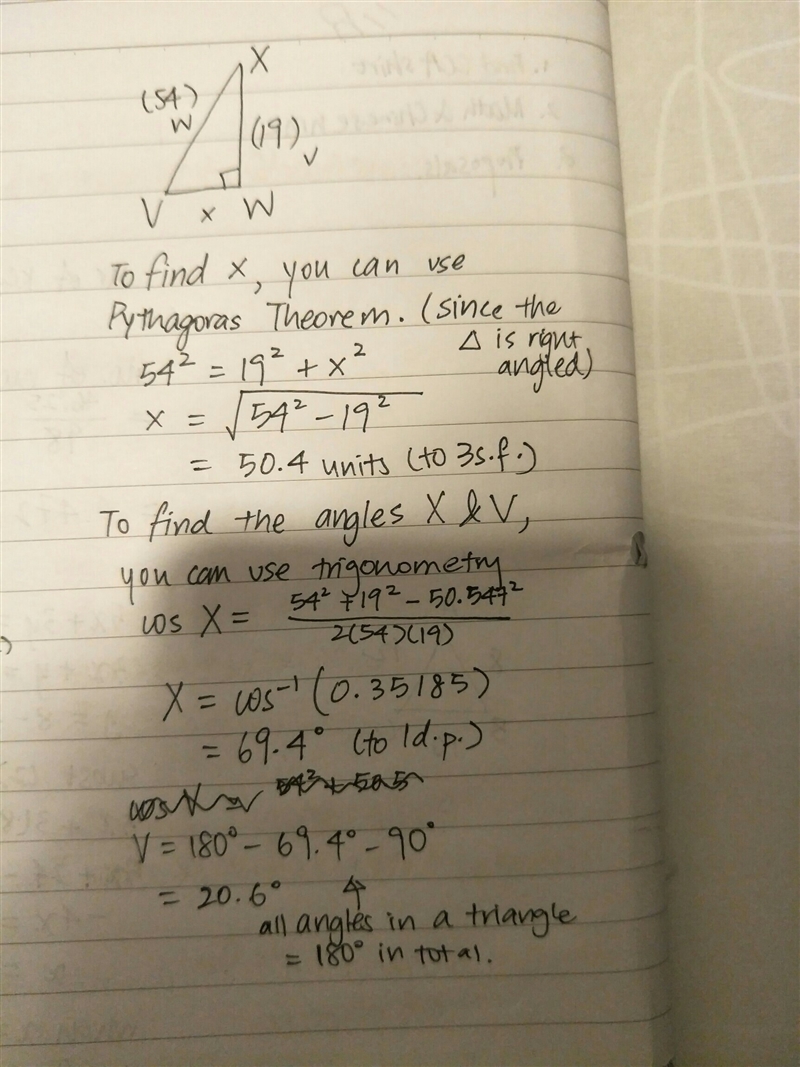 X
(54)
W
(19)
V
V
x
W
To find x, you can use
Pythagoras Theorem. (since the
Δ is right
angled)
54² = 19² + x²
x = √54² - 19²
= 50.4 units (to 3s.f.)
To find the angles X & V,
you can use trigonometry
cos X = 54² + 19² - 50.547²
2(54)(19)
X = cos⁻¹ (0.35185)
= 69.4° (to 1d.p.)
V = 180° - 69.4° - 90°
= 20.6°
all angles in a triangle
= 180° in total.